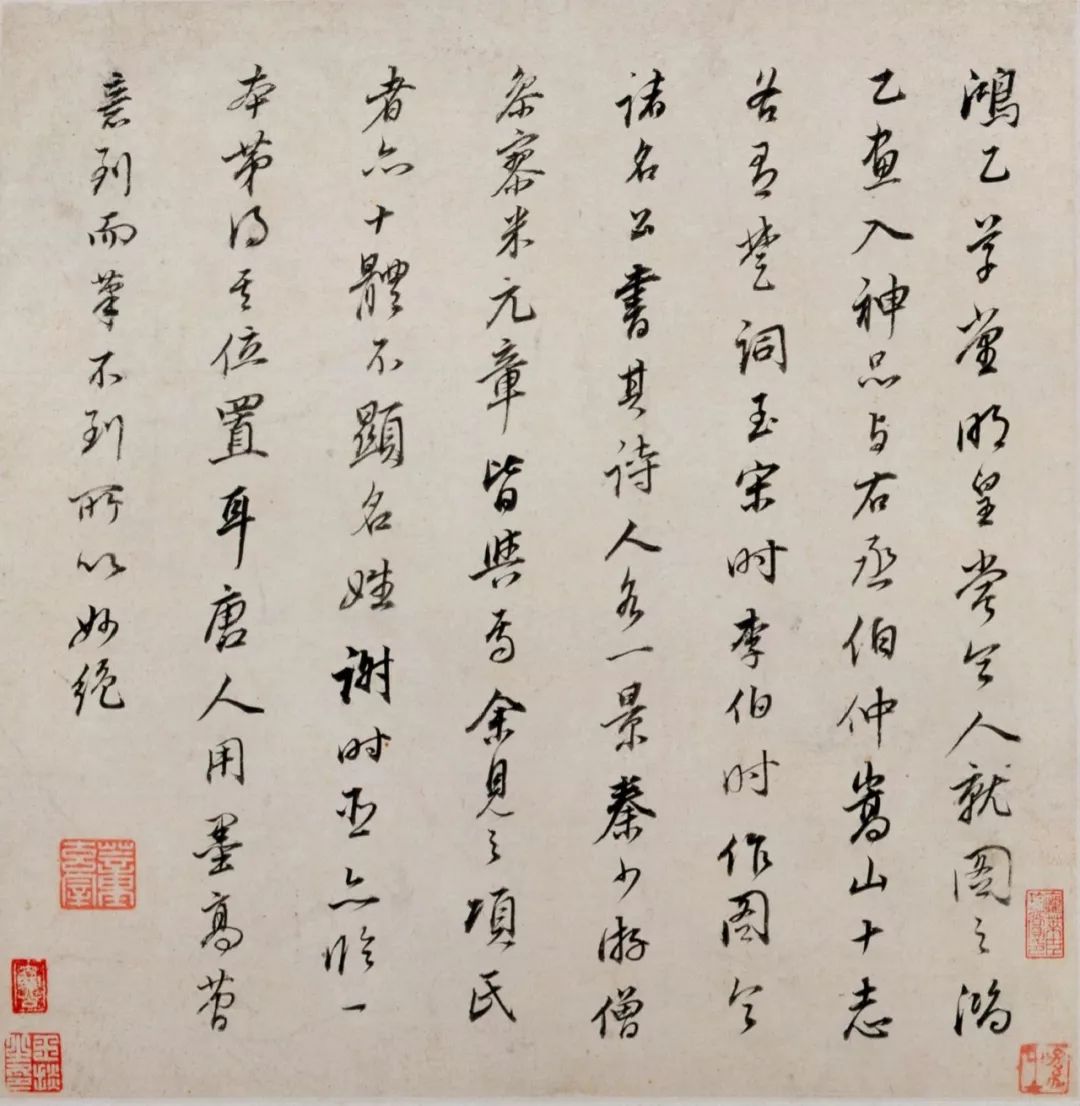 鴻乙草堂明皇嘗令人就圖之鴻
乙畫入神品與右丞伯仲嵩山十志
各有楚詞至宋時李伯時作圖令
諸名公書其詩人各一景秦少游僧
參寥米元章皆與焉余見之項氏
者亦十體不顯名姓謝時臣亦臨一
本第得其位置耳唐人用墨高簡
意到而筆不到所以妙絕